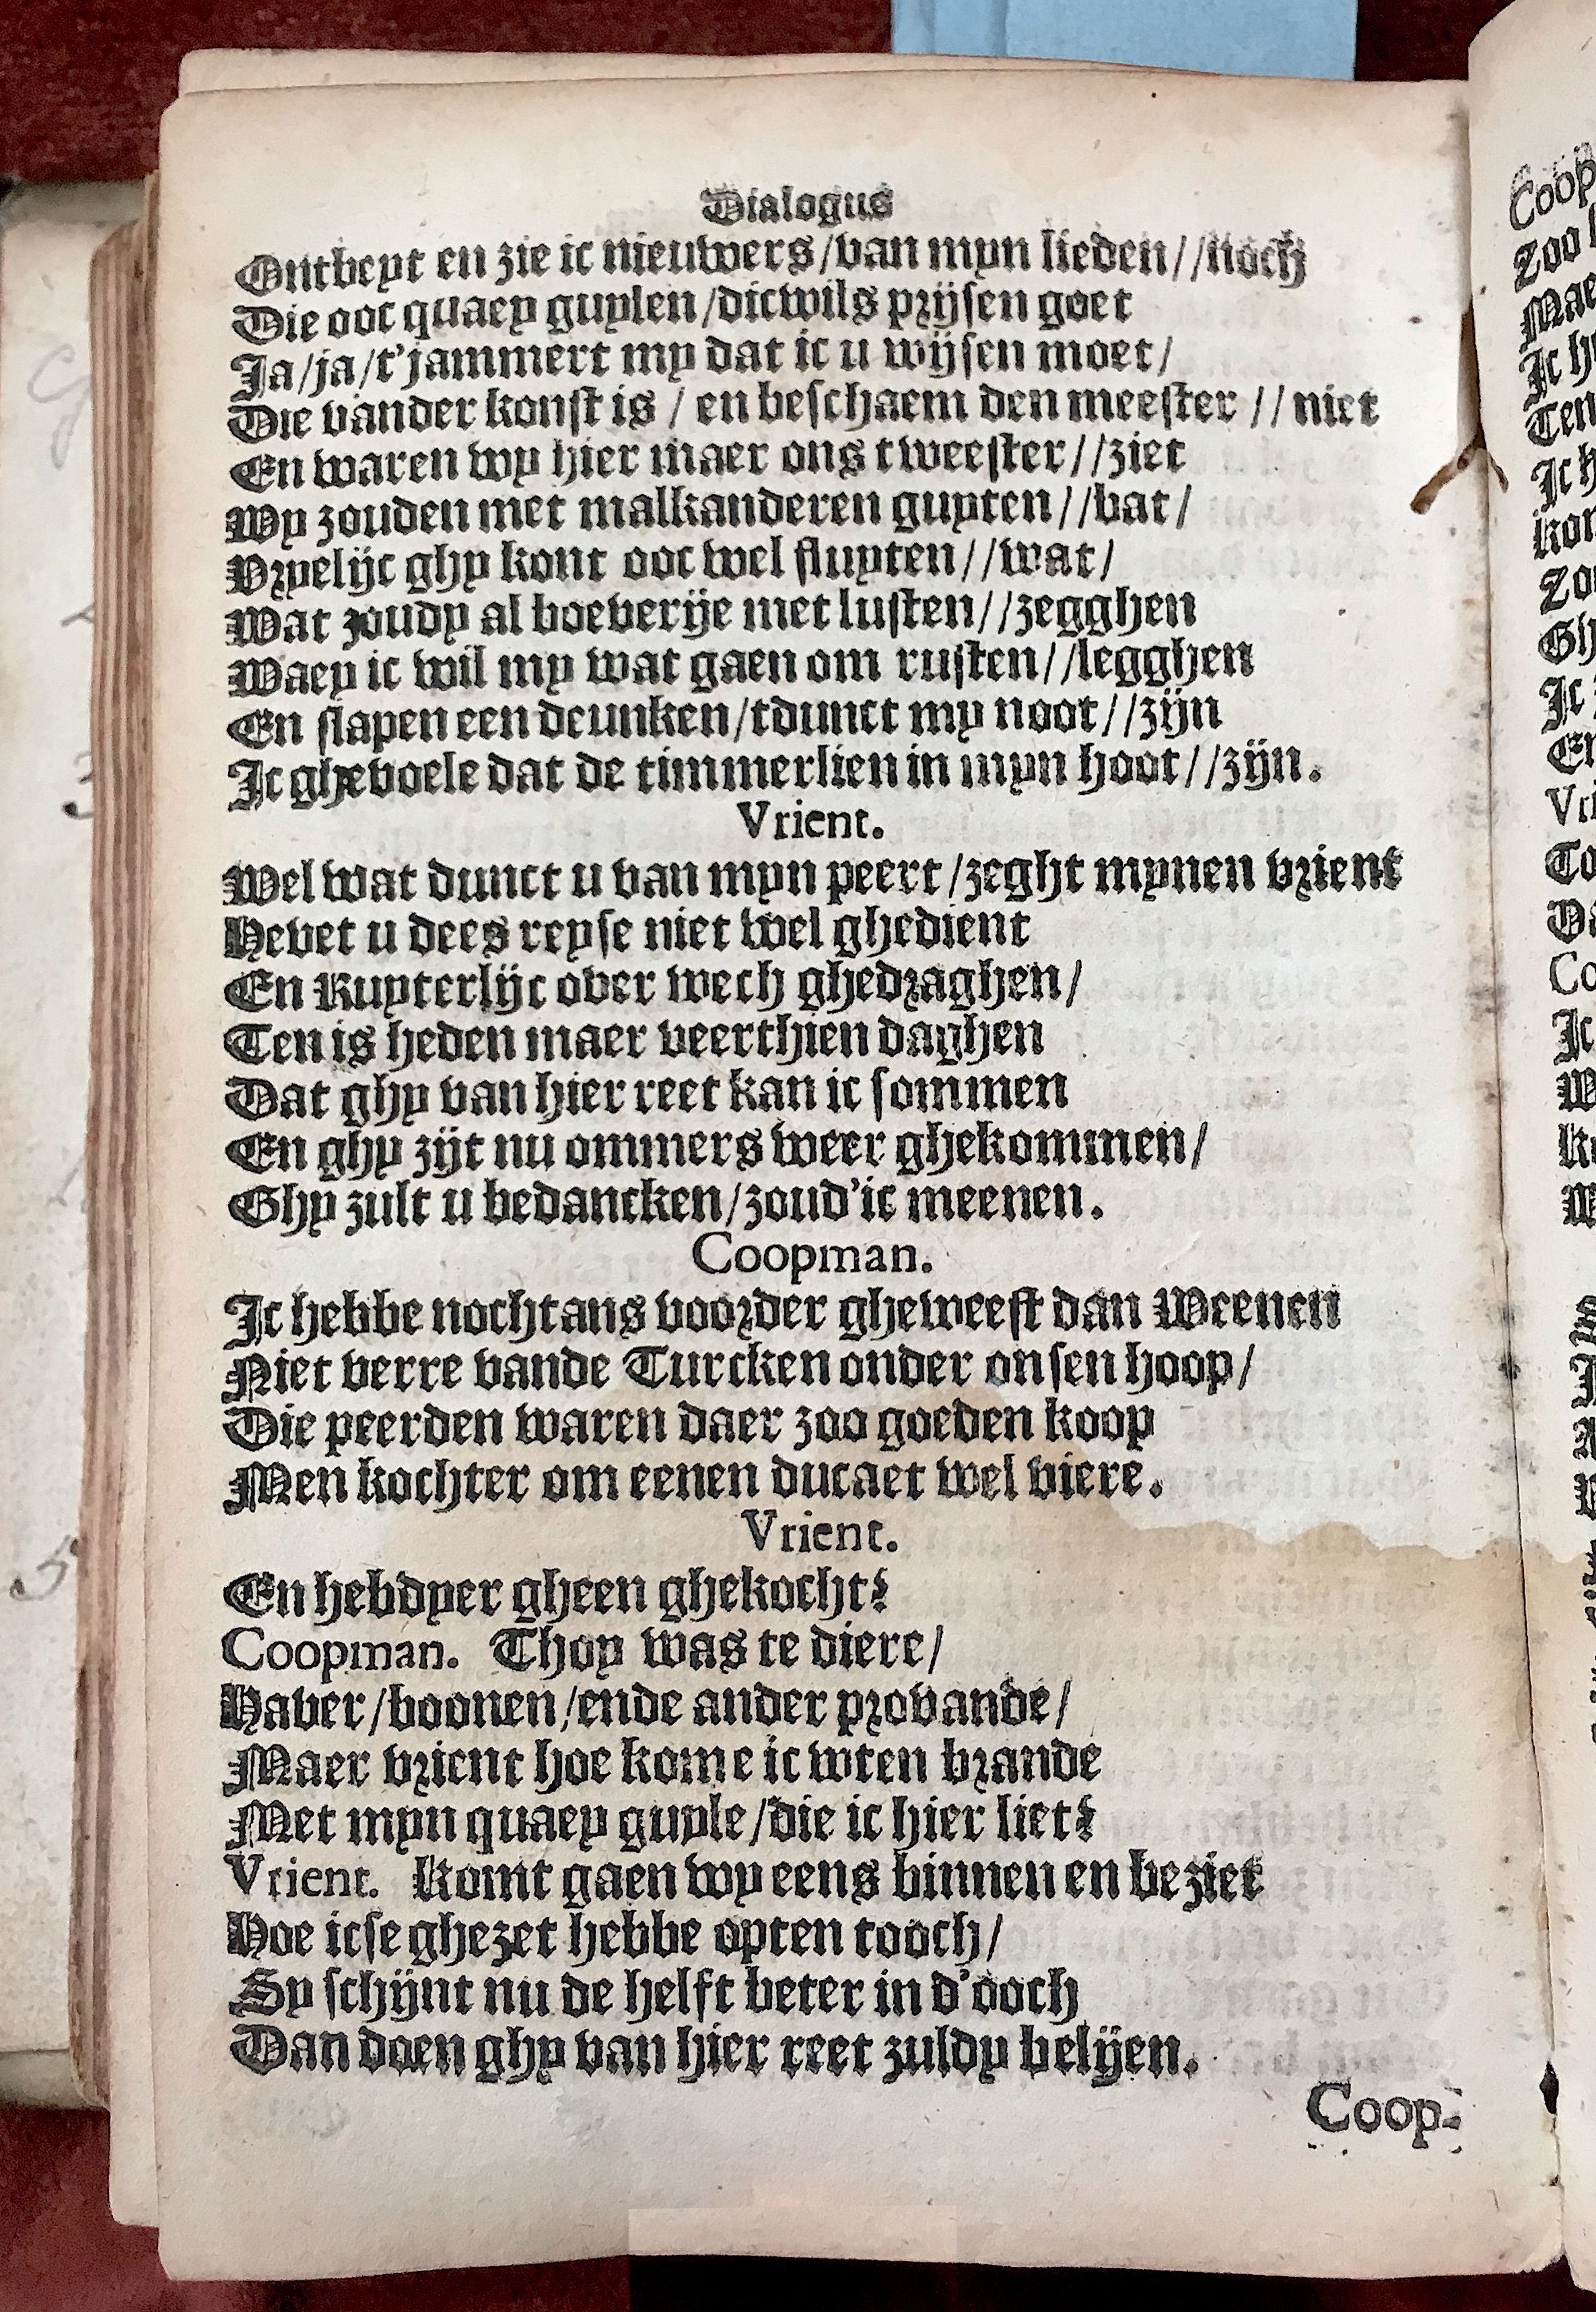 Dialogus
Ontbeyt en zie ic nieuwers/van myn lieden//noch
Die ooc quaey guylen/dicwils prijsen goet
Ja/ja/t'jammert my dat ic u wijsen moet/
Die vander konst is / en beschaem den meester // niet
En waren wy hier maer ons tweester//ziet
Wy zouden met malkanderen guyten//bat/
Vryelijc ghy kont ooc wel fluyten//wat/
Wat zoudy al boeverije met lusten//zegghen
Waey ic wil my wat gaen om rusten//legghen
En slapen een deunken/tdunct my noot//zijn
Ic ghevoele dat de timmerlien in myn hoot//zijn.
Vrient.
Wel wat dunct u van myn peert/zeght mynen vrient
Hevet u dees reyse niet wel ghedient
En Ruyterlijc over wech ghedraghen/
Ten is heden maer veerthien daghen
Dat ghy van hier reet kan ic sommen
En ghy zijt nu ommers weer ghekommen/
Ghy zult u bedancken/zoud'ic meenen.
Coopman.
Ic hebbe nochtans voorder gheweest dan Weenen
Niet verre vande Turcken onder onsen hoop/
Die peerden waren daer zoo goeden koop
Men kochter om eenen ducaet wel viere.
Vrient.
En hebdyer gheen ghekocht?
Coopman. Thoy was te diere/
Haver/boonen/ende ander provande/
Maer vrient hoe kome ic wten brande
Met myn quaey guyle/die ic hier liet?
Vrient. Komt gaen wy eens binnen en beziet
Hoe icse ghezet hebbe opten tooch/
Sy schijnt nu de helft beter in d'ooch
Dan doen ghy van hier reet zuldy belijen.
Coop-
Coop
Zoo
Mae
Ic h
Ten
Ic h
kon
Zo
Gh
Ic
En
Vri
To
Da
Co
Ic